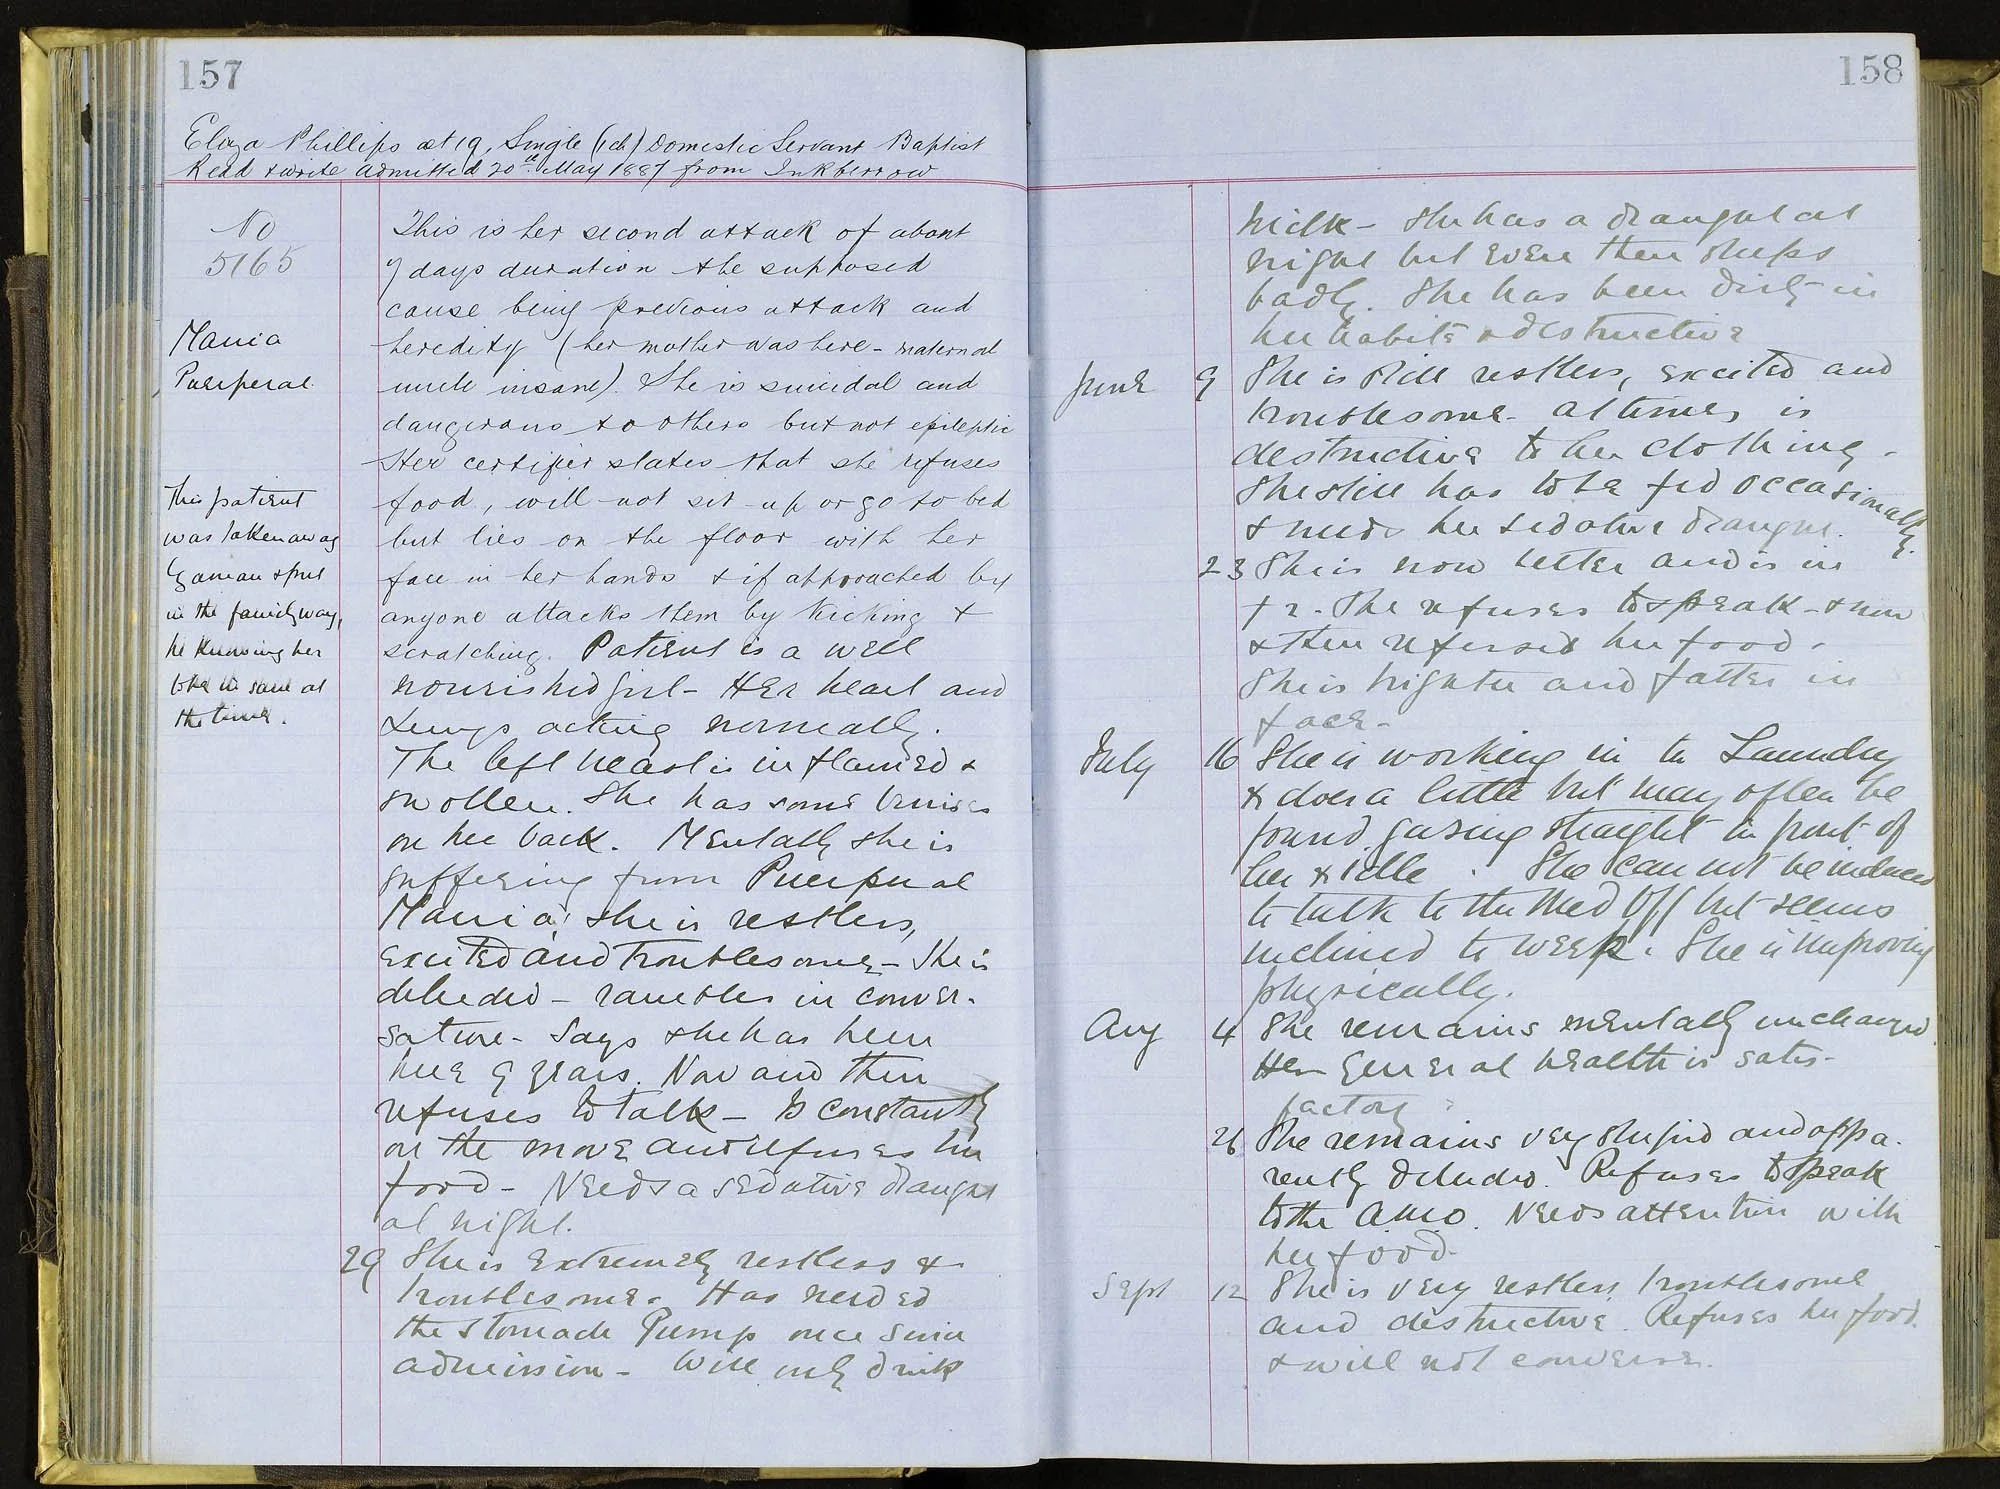 157
Eliza Phillips æt 19, Single (1 ch) Domestic Servant Baptist
Read & write admitted 20th May 1887 from Inkberrow
No
5165
Mania
Puerperal.
This patient
was taken away
by a man & put
in the family way,
he knowing her
to be insane at
the time.
This is her second attack of about
7 days duration the supposed
cause being previous attack and
heredity (her mother was here - maternal
uncle insane). She is suicidal and
dangerous to others but not epileptic
Her certifier states that she refuses
food, will not sit up or go to bed
but lies on the floor with her
face in her hands & if approached by
anyone attacks them by kicking &
scratching. Patient is a well
nourished girl - Her heart and
Lungs acting normally.
The left breast is inflamed &
swollen. She has some bruises
on her back. Mentally she is
suffering from Puerperal
Mania; she is restless,
excited and troublesome - She is
deluded - rambles in conver-
sation - Says she has been
here 9 years. Now and then
refuses to talk - Is constantly
on the move and refuses her
food - Needs a sedative draught
at night.
29 She is extremely restless &
troublesome. Has needed
the Stomach Pump once since
admission - Will only drink
158
milk - She has a draught at
night but even then sleeps
badly. She has been dirty in
her habits & destructive
June 9 She is still restless, excited and
troublesome - at times is
destructive to her clothing -
She still has to be fed occasionally
& needs her sedative draught.
23 She is now better and is in
F 2. She refuses to speak - & now
& then refuses her food.
She is brighter and fatter in
face -
July 16 She is working in the Laundry
& does a little but may often be
found gazing straight in front of
her & idle. She can not be induced
to talk to the Med Off but seems
inclined to weep. She is improving
physically.
Aug 4 She remains mentally unchanged
Her general health is satis-
factory.
26 She remains very stupid and appa-
rently deluded. Refuses to speak
to the A.M.O. Needs attention with
her food.
Sept 12 She is very restless, troublesome
and destructive. Refuses her food
& will not converse.